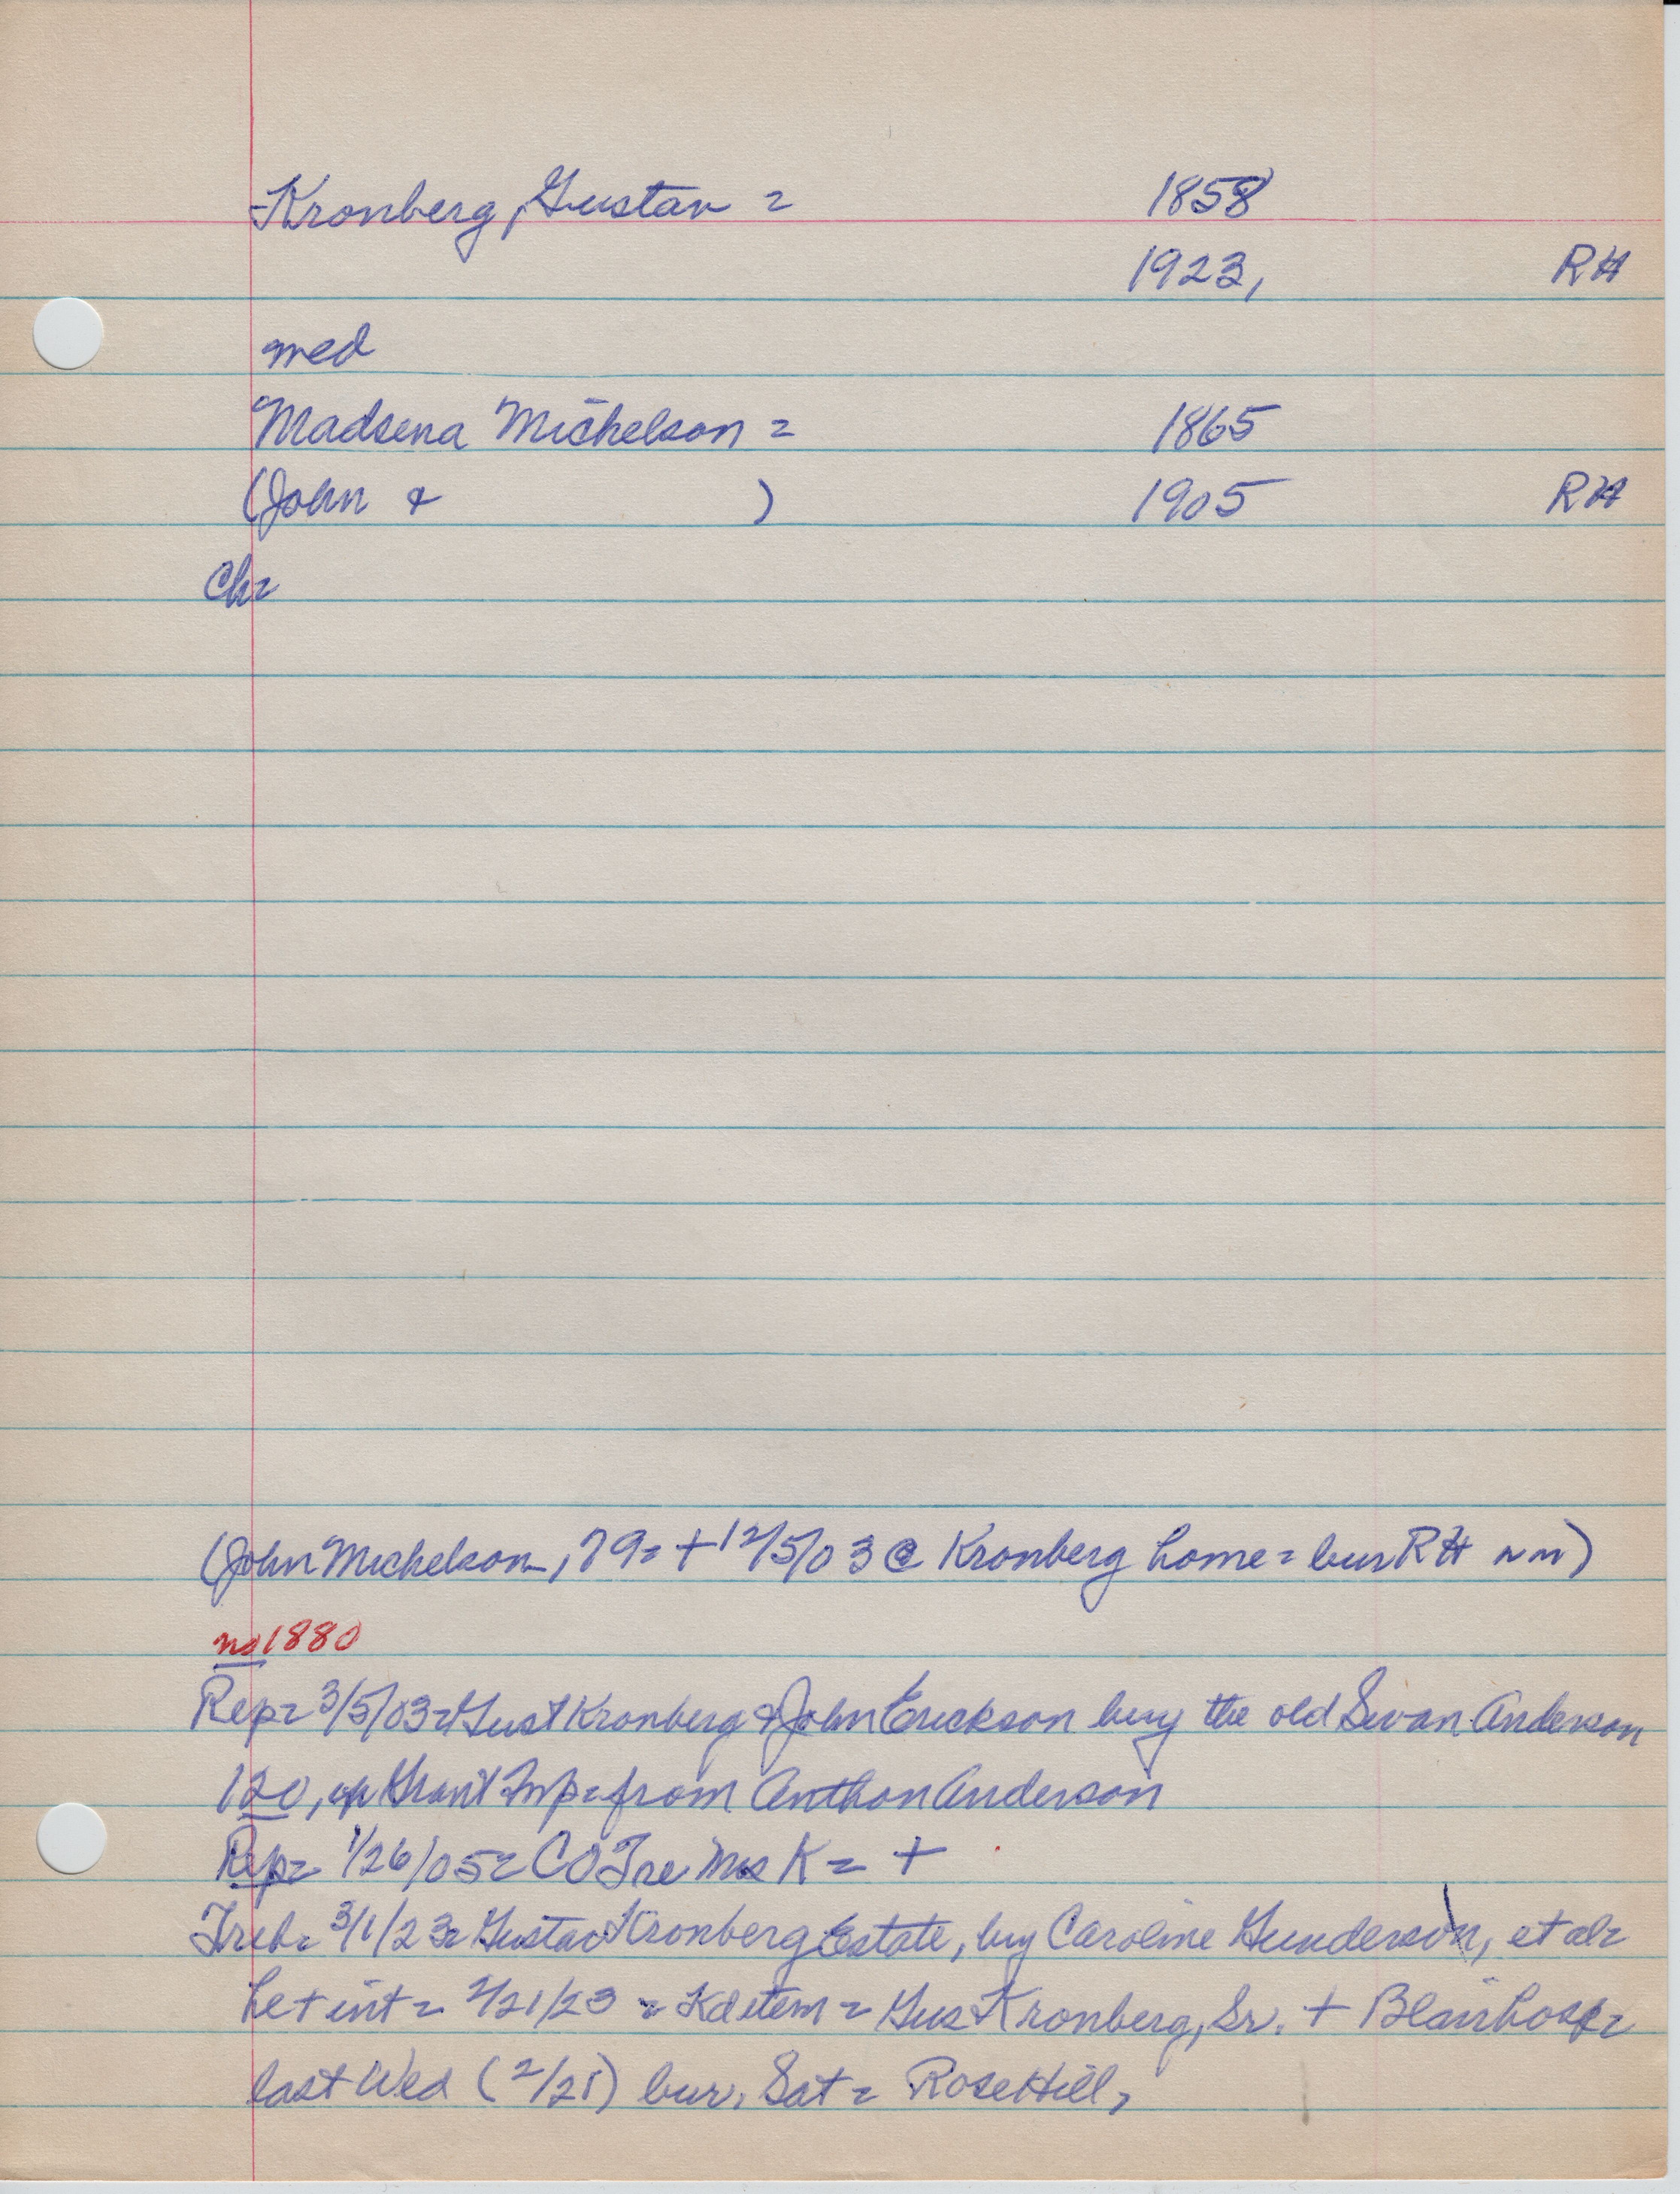 Kronberg, Gustav = 1858
1923, RH
med
Madsena Michelson = 1865
(John & ) 1905 RH
Ch=
(John Michelson, 79= + 12/5/03 @ Kronberg home = bur RH nm)
no 1880
Rep= 3/5/03= Gust Kronberg & John Erickson buy the old Swan Anderson
120, Grant Twp= from Anthon Anderson
Rep= 1/26/05= COT re Mrs K = +
Treb= 3/1/23= Gustav Kronberg Estate, by Caroline Gunderson, et al=
Let int = 2/21/23 = Kd item = Gus Kronberg, Sr. + Blair hosp=
last Wed (2/21) bur, Sat = Rose Hill,